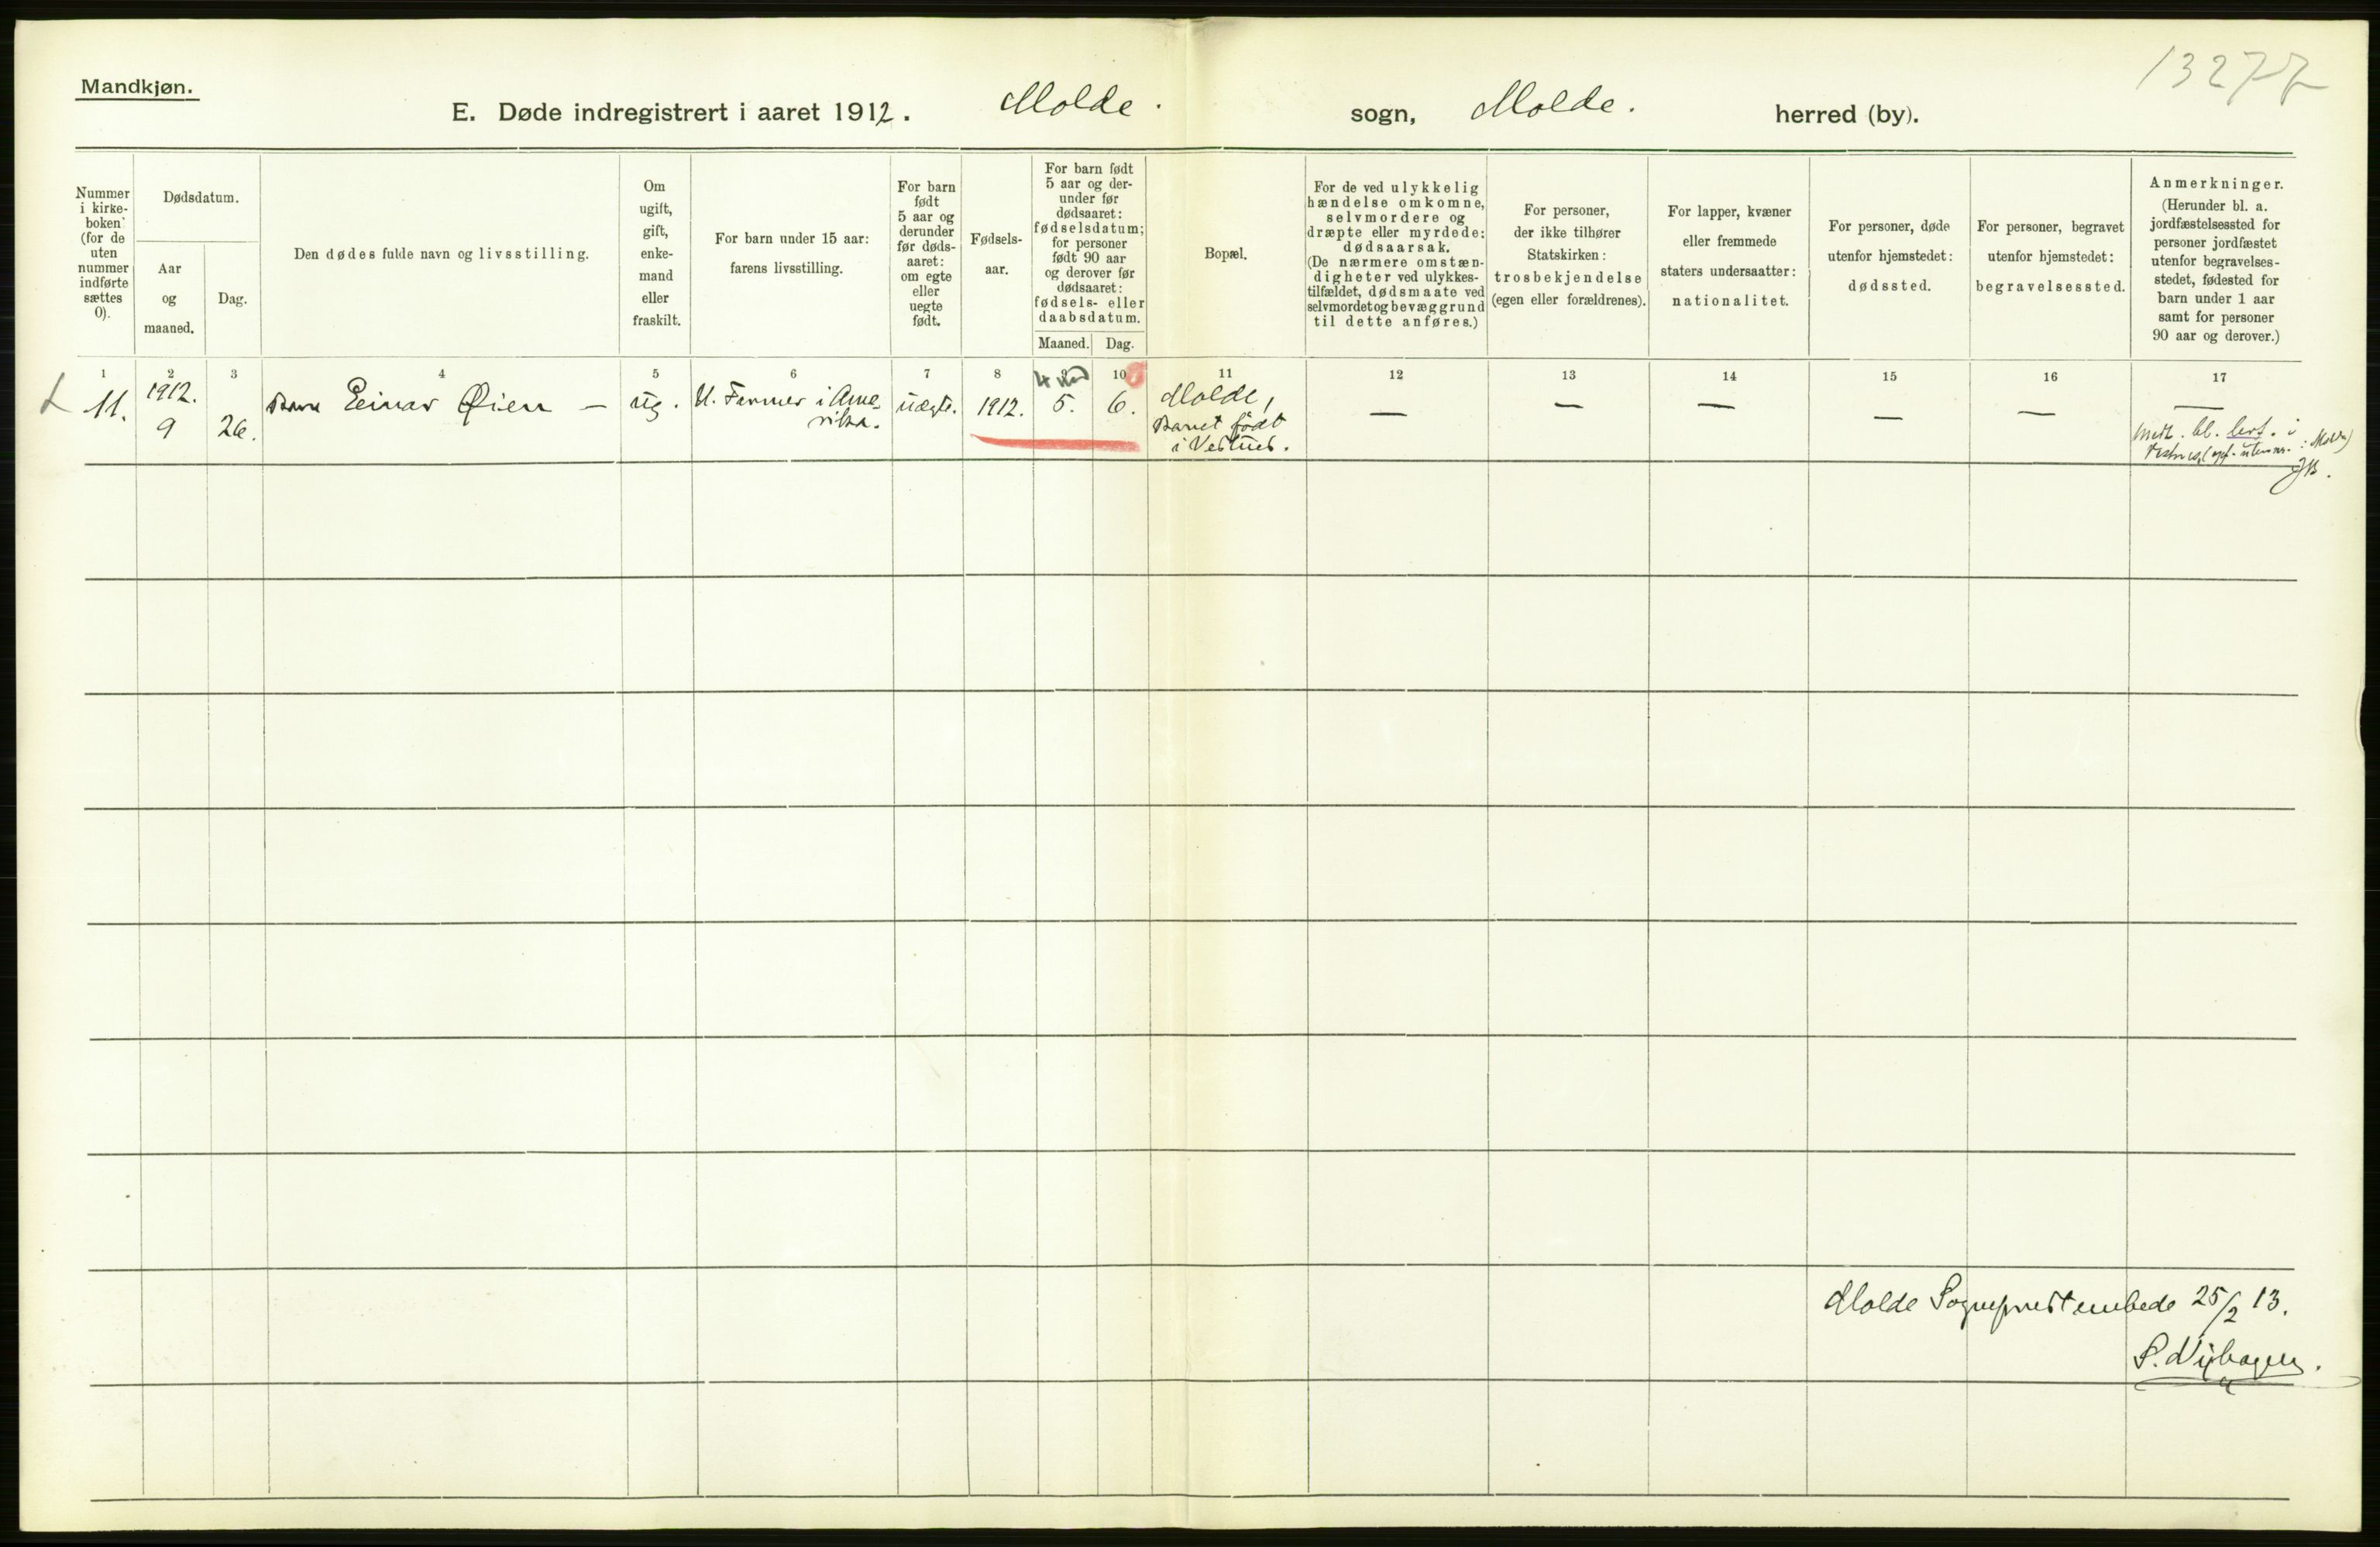 13277
Mandkjøn.
E. Døde indregistrert i aaret 1912. Molde. sogn, Molde. herred (by).
Nummer
i kirke-
boken
(for de
uten
nummer
indførte
sættes
0).
Dødsdatum.
Aar
og
maaned.
Dag.
Den dødes fulde navn og livsstilling.
Om
ugift,
gift,
enke-
mand
eller
fraskilt.
For barn under 15 aar:
farens livsstilling.
For barn
født
5 aar og
derunder
før døds-
aaret:
om egte
eller
uegte
født.
Fødsels-
aar.
For barn født
5 aar og der-
under før
dødsaaret:
fødselsdatum;
for personer
født 90 aar
og derover før
dødsaaret:
fødsels- eller
daabsdatum.
Maaned. Dag.
Bopæl.
For de ved ulykkelig
hændelse omkomne,
selvmordere og
dræpte eller myrdede:
dødsaarsak.
(De nærmere omstæn-
digheter ved ulykkes-
tilfældet, dødsmaate ved
selvmordet og bevæggrund
til dette anføres.)
For personer,
der ikke tilhører
Statskirken:
trosbekjendelse
(egen eller forældrenes).
For lapper, kvæner
eller fremmede
staters undersaatter:
nationalitet.
For personer, døde
utenfor hjemstedet:
dødssted.
For personer, begravet
utenfor hjemstedet:
begravelsessted.
Anmerkninger.
(Herunder bl. a.
jordfæstelsessted for
personer jordfæstet
utenfor begravelses-
stedet, fødested for
barn under 1 aar
samt for personer
90 aar og derover.)
1 2 3 4 5 6 7 8 9 10 11 12 13 14 15 16 17
11.
1912.
9
26.
Barn Einar Øien —
ug.
U. Farmer i Ame-
rika.
uægte.
1912.
4
5.
6.
Molde,
Barnet født
i Vestnes.
— — — — — —
Medt. bl. levf. i
Molde Sogneprestembede 25/2 13.